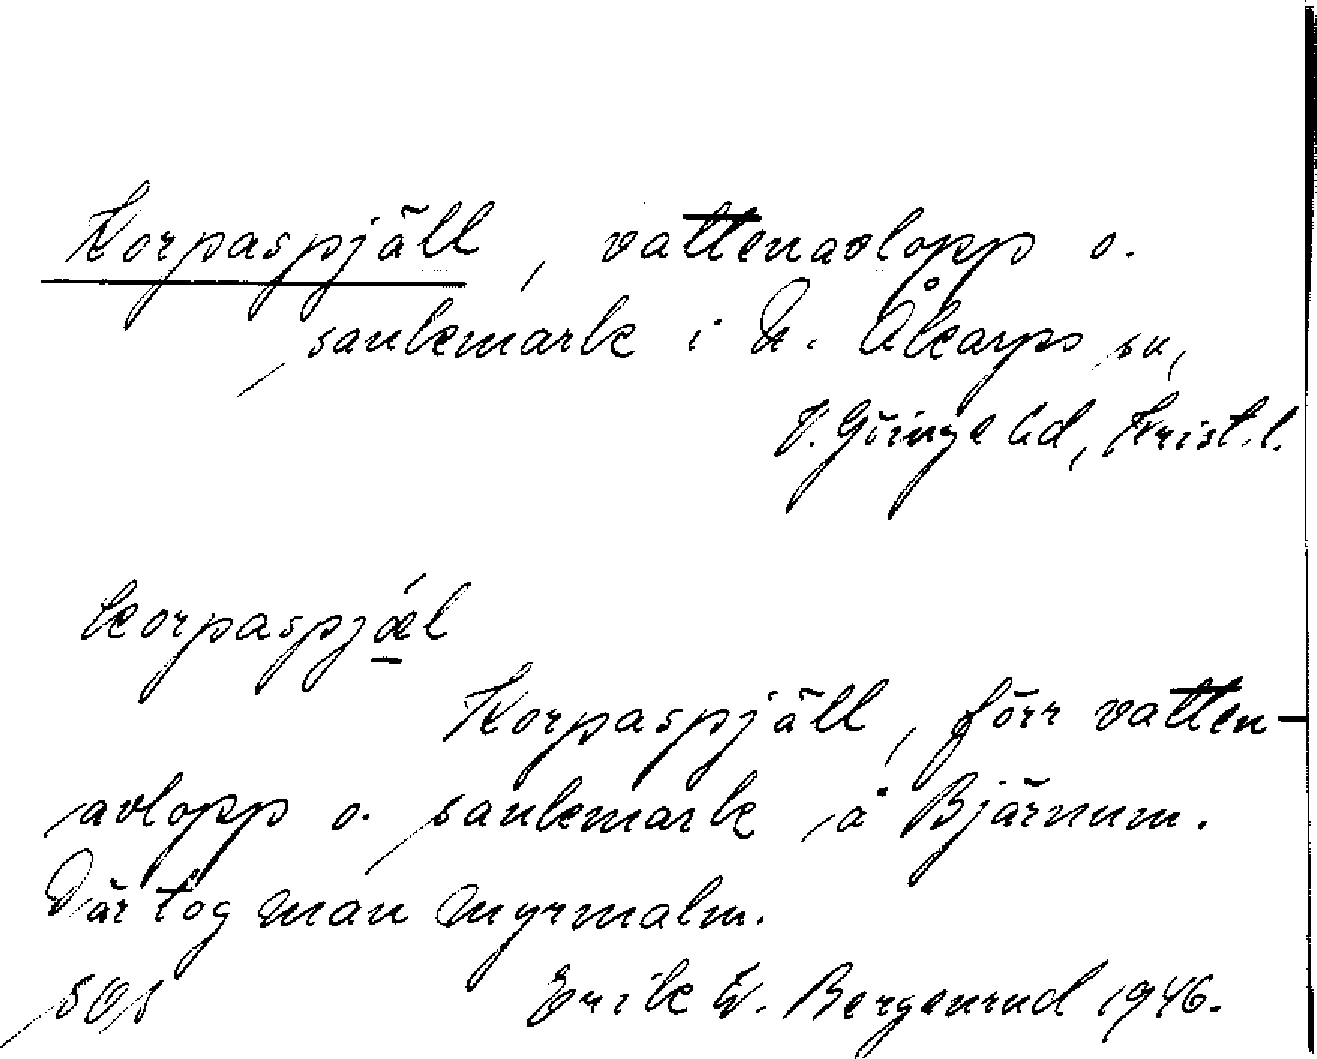 Korpaspjäll, vattenavlopp o.
sankmark i N. Åkarps sn,
V. Göinge hd, Krist. l.
korpaspjǽl
Korpaspjäll, förr vatten-
avlopp o. sankmark å Bjärnum.
Där tog man myrmalm.
Erik W. Bergenrud 1946.